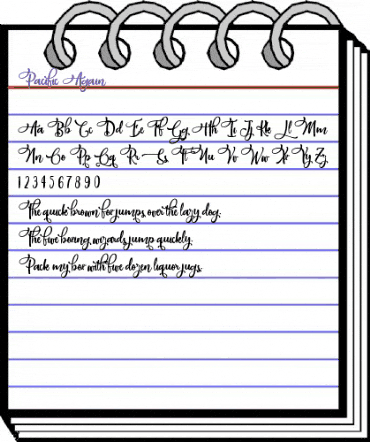 Pacific Again
Aa Bb Cc Dd Ee Ff Gg Hh Ii Jj Kk Ll Mm
Nn Oo Pp Qq Rr Ss Tt Uu Vv Ww Xx Yy Zz
1 2 3 4 5 6 7 8 9 0
The quick brown fox jumps over the lazy dog.
The five boxing wizards jump quickly.
Pack my box with five dozen liquor jugs.